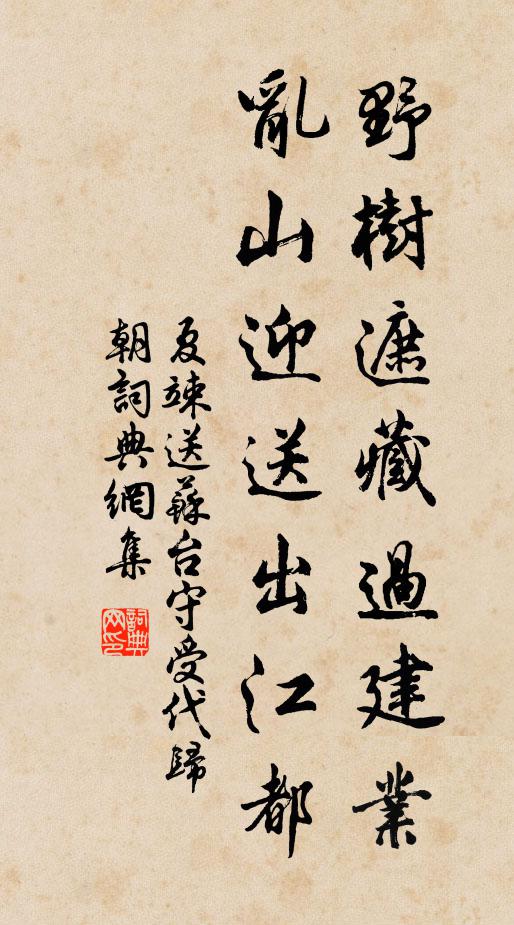 野樹遮藏過建業
亂山迎送出江都
夏竦送蘇台守受代歸
朝詞典網集
詞典網印